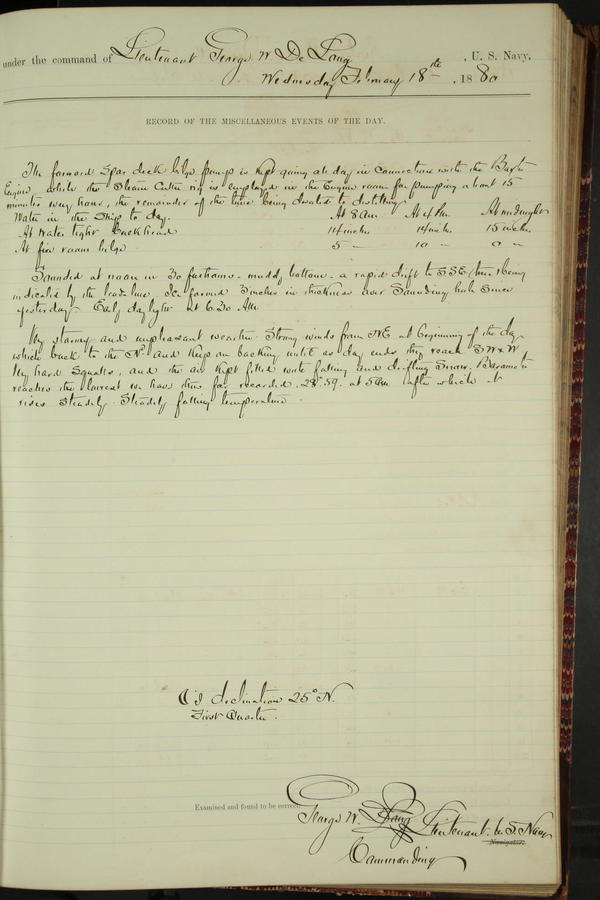 under the command of Lieutenant George W De Long, U. S. Navy,
Wednesday February 18th, 1880
RECORD OF THE MISCELLANEOUS EVENTS OF THE DAY.
The forward spar deck bilge pump is kept going all day in connection with the Baxter
Engine while the Steam Cutter rig is employed in the Engine room for pumping about 15
minutes every hour, the remainder of the time being devoted to distilling.
Water in the Ship to day. At 8 am. At 4 Pm. At midnight
At Water tight Bulkhead 14 inches 14 inches 15 inches
At fire room bilge 5 " 10 " "
Sounded at noon in 30 fathoms - muddy bottom - a rapid drift to SSE (true) being
indicated by the lead line. Ice formed 3 inches in thickness over Sounding hole since
yesterday. Early daylight at 6.30 AM
Very stormy and unpleasant weather. Strong winds from NE at beginning of the day
which back to the Nd and keep on backing until as day ends they reach SW x W
Very hard squalls, and the air kept filled with falling and drifting Snow. Barometer
reaches the lowest we have thus far recorded, 28.59. at 5 am after which it
rises steadily. Steadily falling temperature.
☾'s declination 25° N.
First Quarter.
Examined and found to be correct.
George W. De Long Lieutenant. U. S. Navy
Navigator.
Commanding